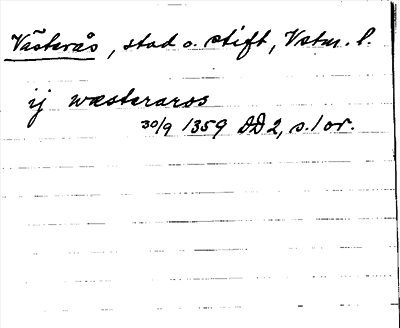 Västerås, stad o. stift, Vstm. l.
ij wæsteraros
30/9 1359 DD2, s. 1 or.